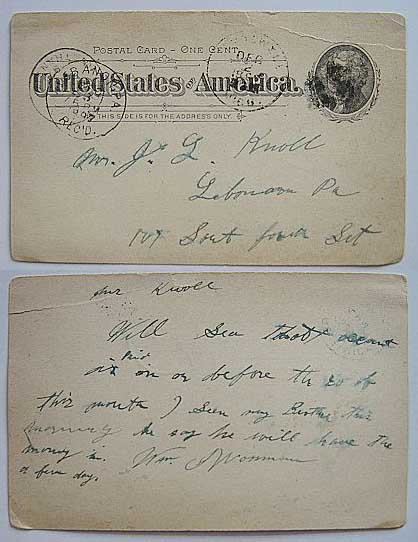 POSTAL CARD - ONE CENT.
United States of America.
THIS SIDE IS FOR THE ADDRESS ONLY.
LEBANON PA
REC'D.
DEC
Mr. J. L. Knoll
Lebanon Pa
Sout four Set
Mr Knoll
Will See that account
is paid on or before the 20 of
this month I Seen my Brother this
morning he say he will have the
money in
a few day. Wm